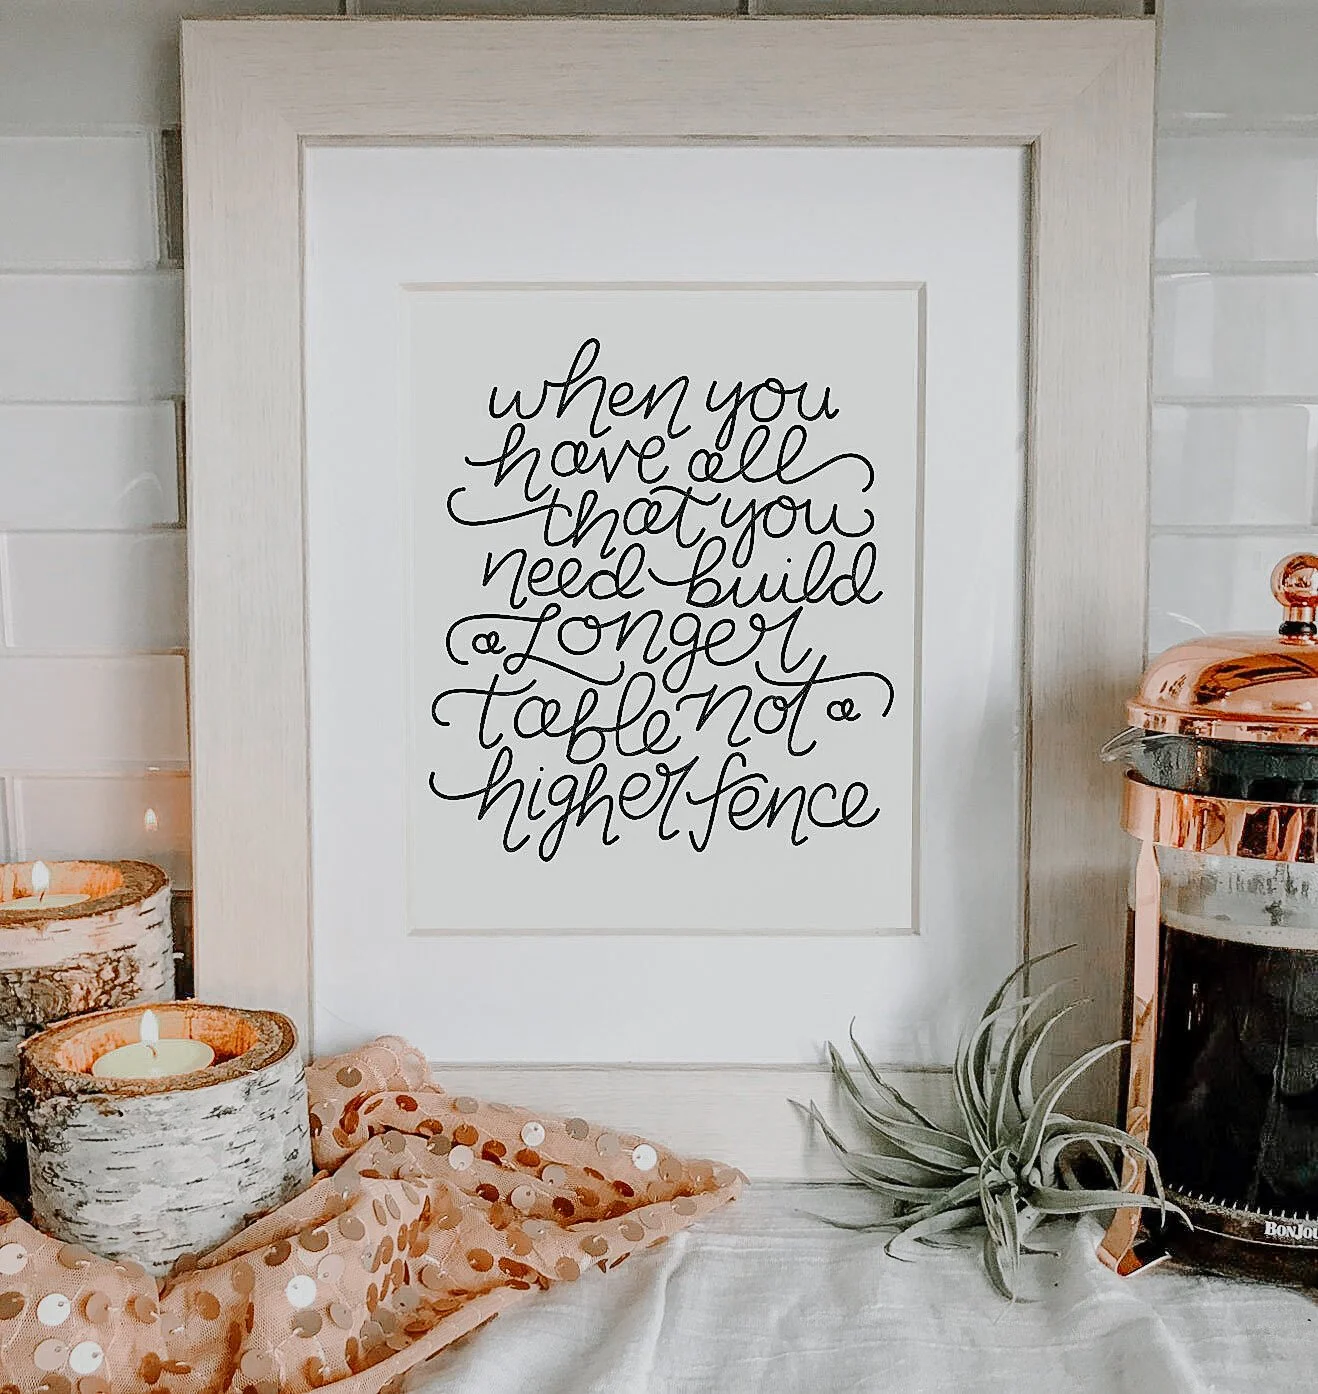 when you
have all
that you
need build
a longer
table not a
higher fence